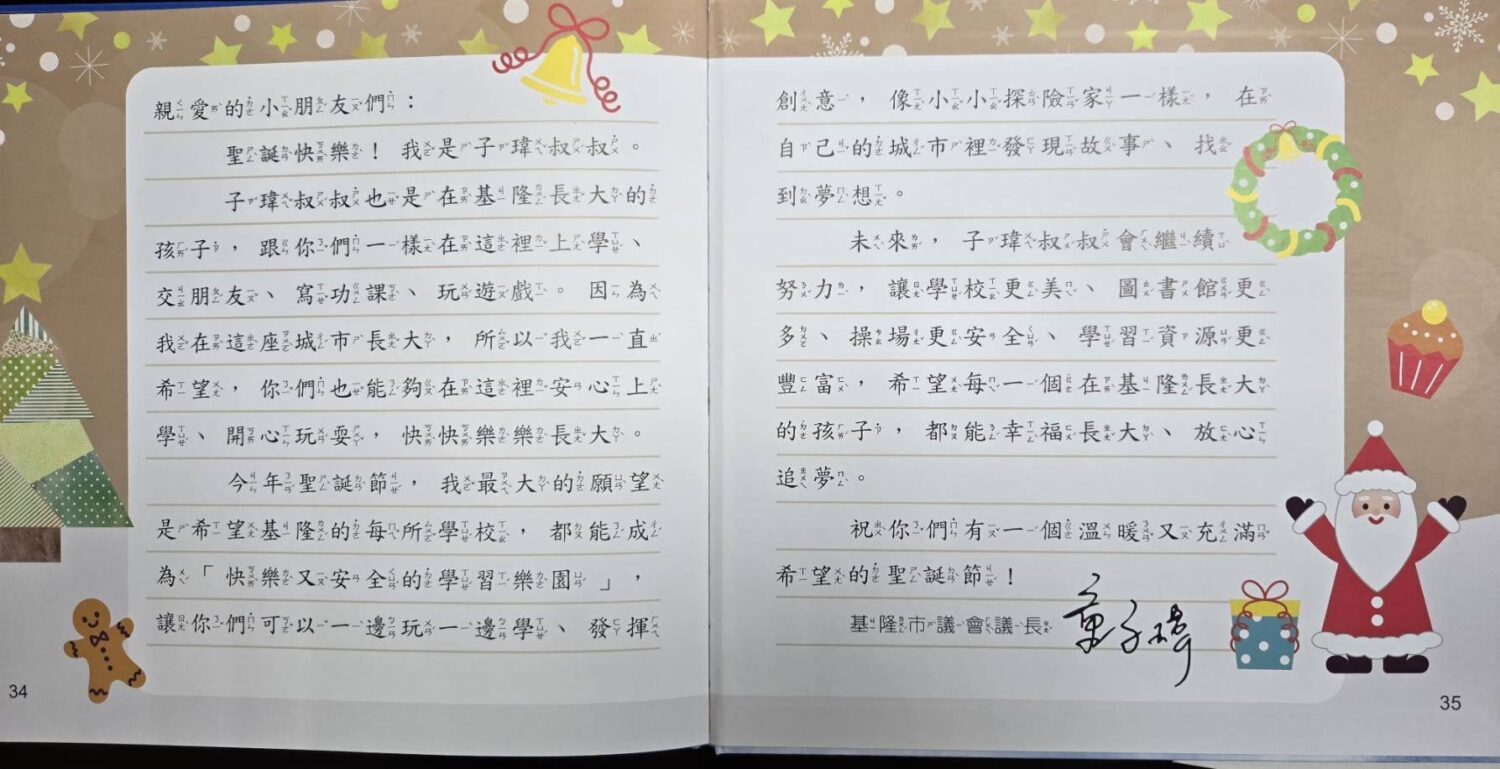 親愛的小朋友們：
聖誕快樂！我是子瑋叔叔。
子瑋叔叔也是在基隆長大的
孩子，跟你們一樣在這裡上學、
交朋友、寫功課、玩遊戲。因為
我在這座城市長大，所以我一直
希望，你們也能夠在這裡安心上
學、開心玩耍，快快樂樂長大。
今年聖誕節，我最大的願望
是希望基隆的每所學校，都能成
為「快樂又安全的學習樂園」，
讓你們可以一邊玩一邊學、發揮
34
創意，像小小探險家一樣，在
自己的城市裡發現故事、找
到夢想。
未來，子瑋叔叔會繼續
努力，讓學校更美、圖書館更
多、操場更安全、學習資源更
豐富，希望每一個在基隆長大
的孩子，都能幸福長大、放心
追夢。
祝你們有一個溫暖又充滿
希望的聖誕節！
基隆市議會議長 童子瑋
35